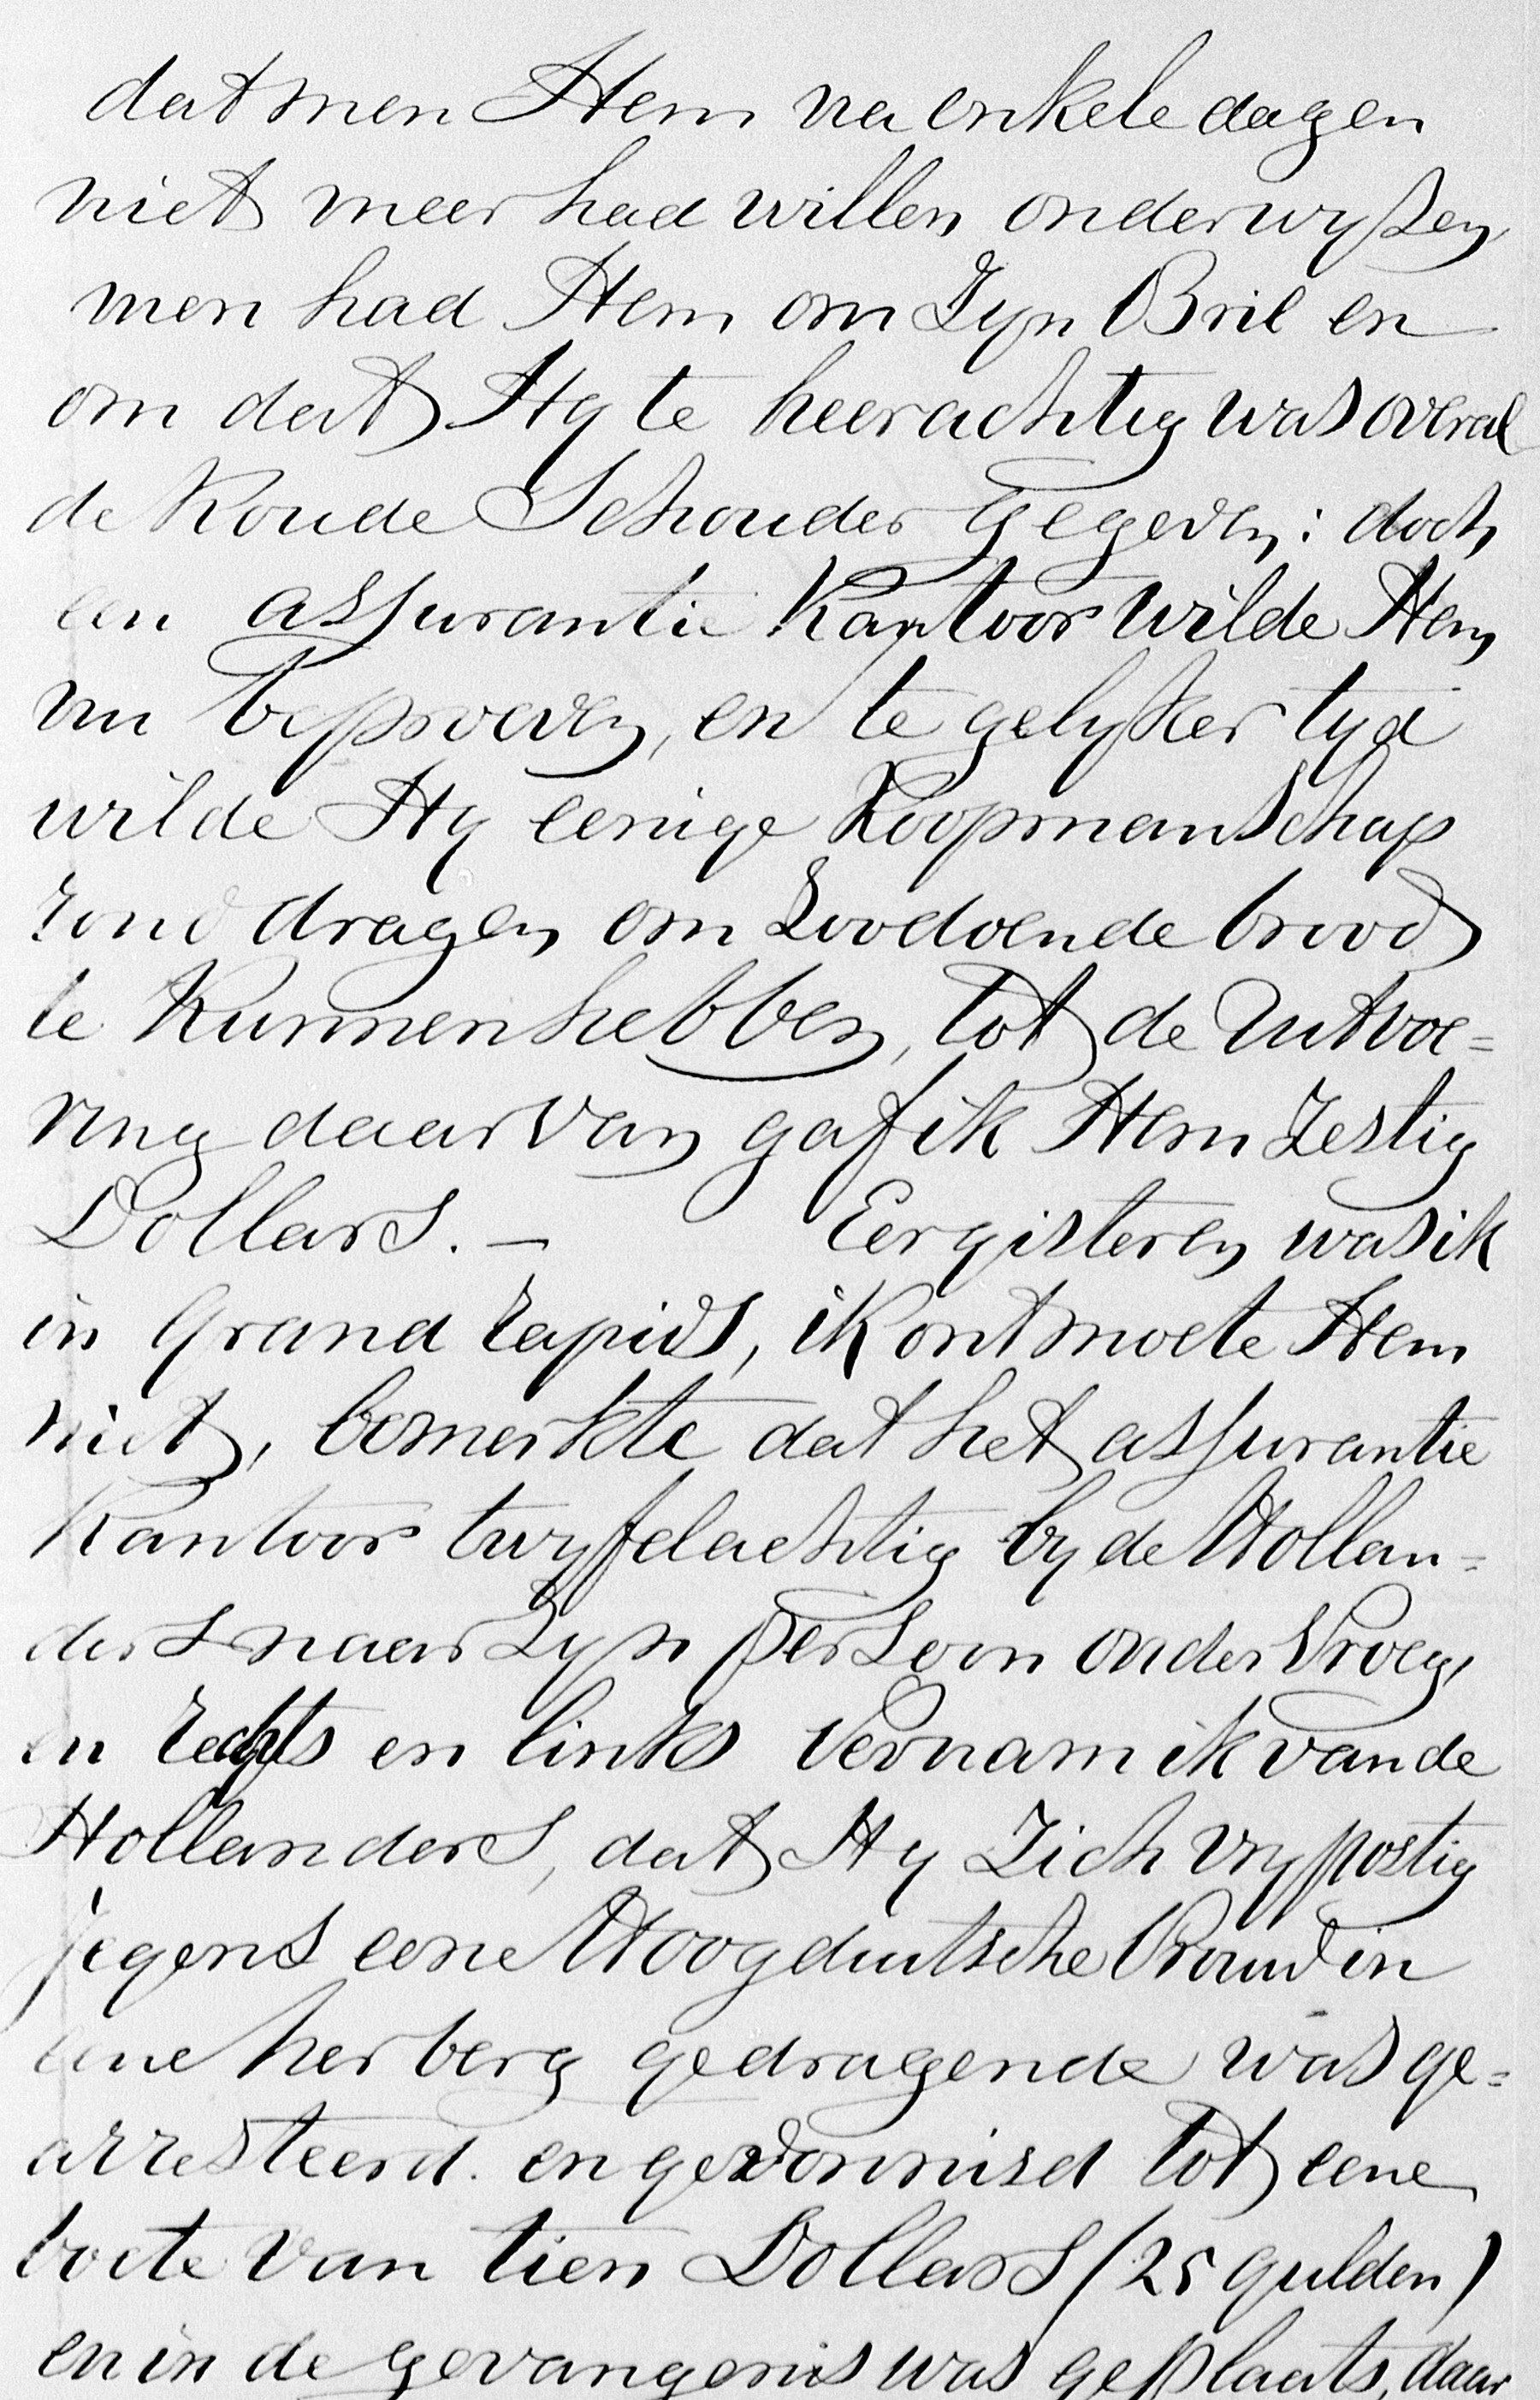 dat men Hem na enkele dagen
niet meer had willen onderwyzen
men had Hem om Zyn Bril en
om dat Hy te heerachtig was overal
de Koude Schouder gegeven: doch
een assurantie Kantoor wilde Hem
nu beproeven, en te gelyker tyd
wilde Hy eenige Koopmanschap
rond dragen om Zoodoende brood
te Kunnen hebben, tot de Uitvoe=
ring daar van gaf ik Hem Zestig
Dollars. — Eergisteren was ik
in Grand rapids, ik ontmoete Hem
niet, bemerkte dat het assurantie
Kantoor twyfelachtig by de Hollan=
ders naar Zyn persoon onder vroeg,
en rechts en links vernam ik van de
Hollanders, dat Hy Zich vrypostig
jegens eene Hoogduitsche Vrouw in
eene herberg gedragende was ge=
arresteerd. en gevonnisd tot eene
boete van tien Dollars (25 gulden)
en in de gevangenis was geplaats, daar